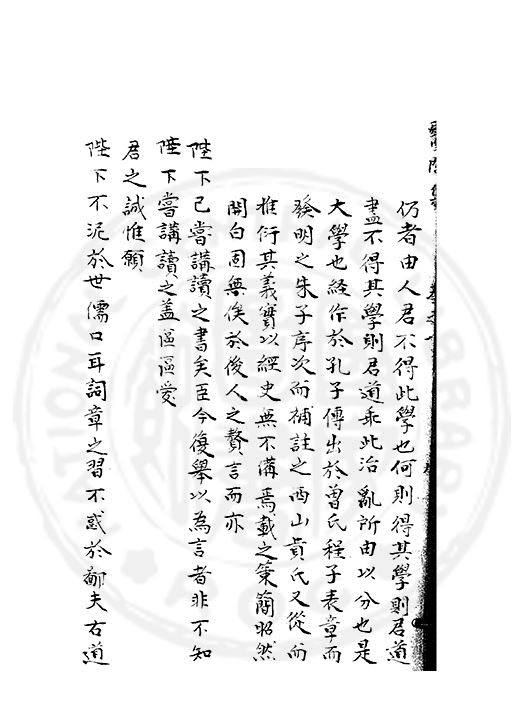 仍者由人君不得此學也何則得其學則君道
盡不得其學則君道乖此治亂所由以分也是
大學也經作於孔子傳出於曾氏程子表章而
發明之朱子序次而補註之西山真氏又從而
推衍其義實以經史無不溝焉載之策簡昭然
開白固無俟於後人之贅言而亦
陛下已嘗講讀之書矣臣今復舉以為言者非不知
陛下嘗講讀之盖區區愛
君之誠惟願
陛下不泥於世儒口耳詞章之習不惑於鄙夫右道